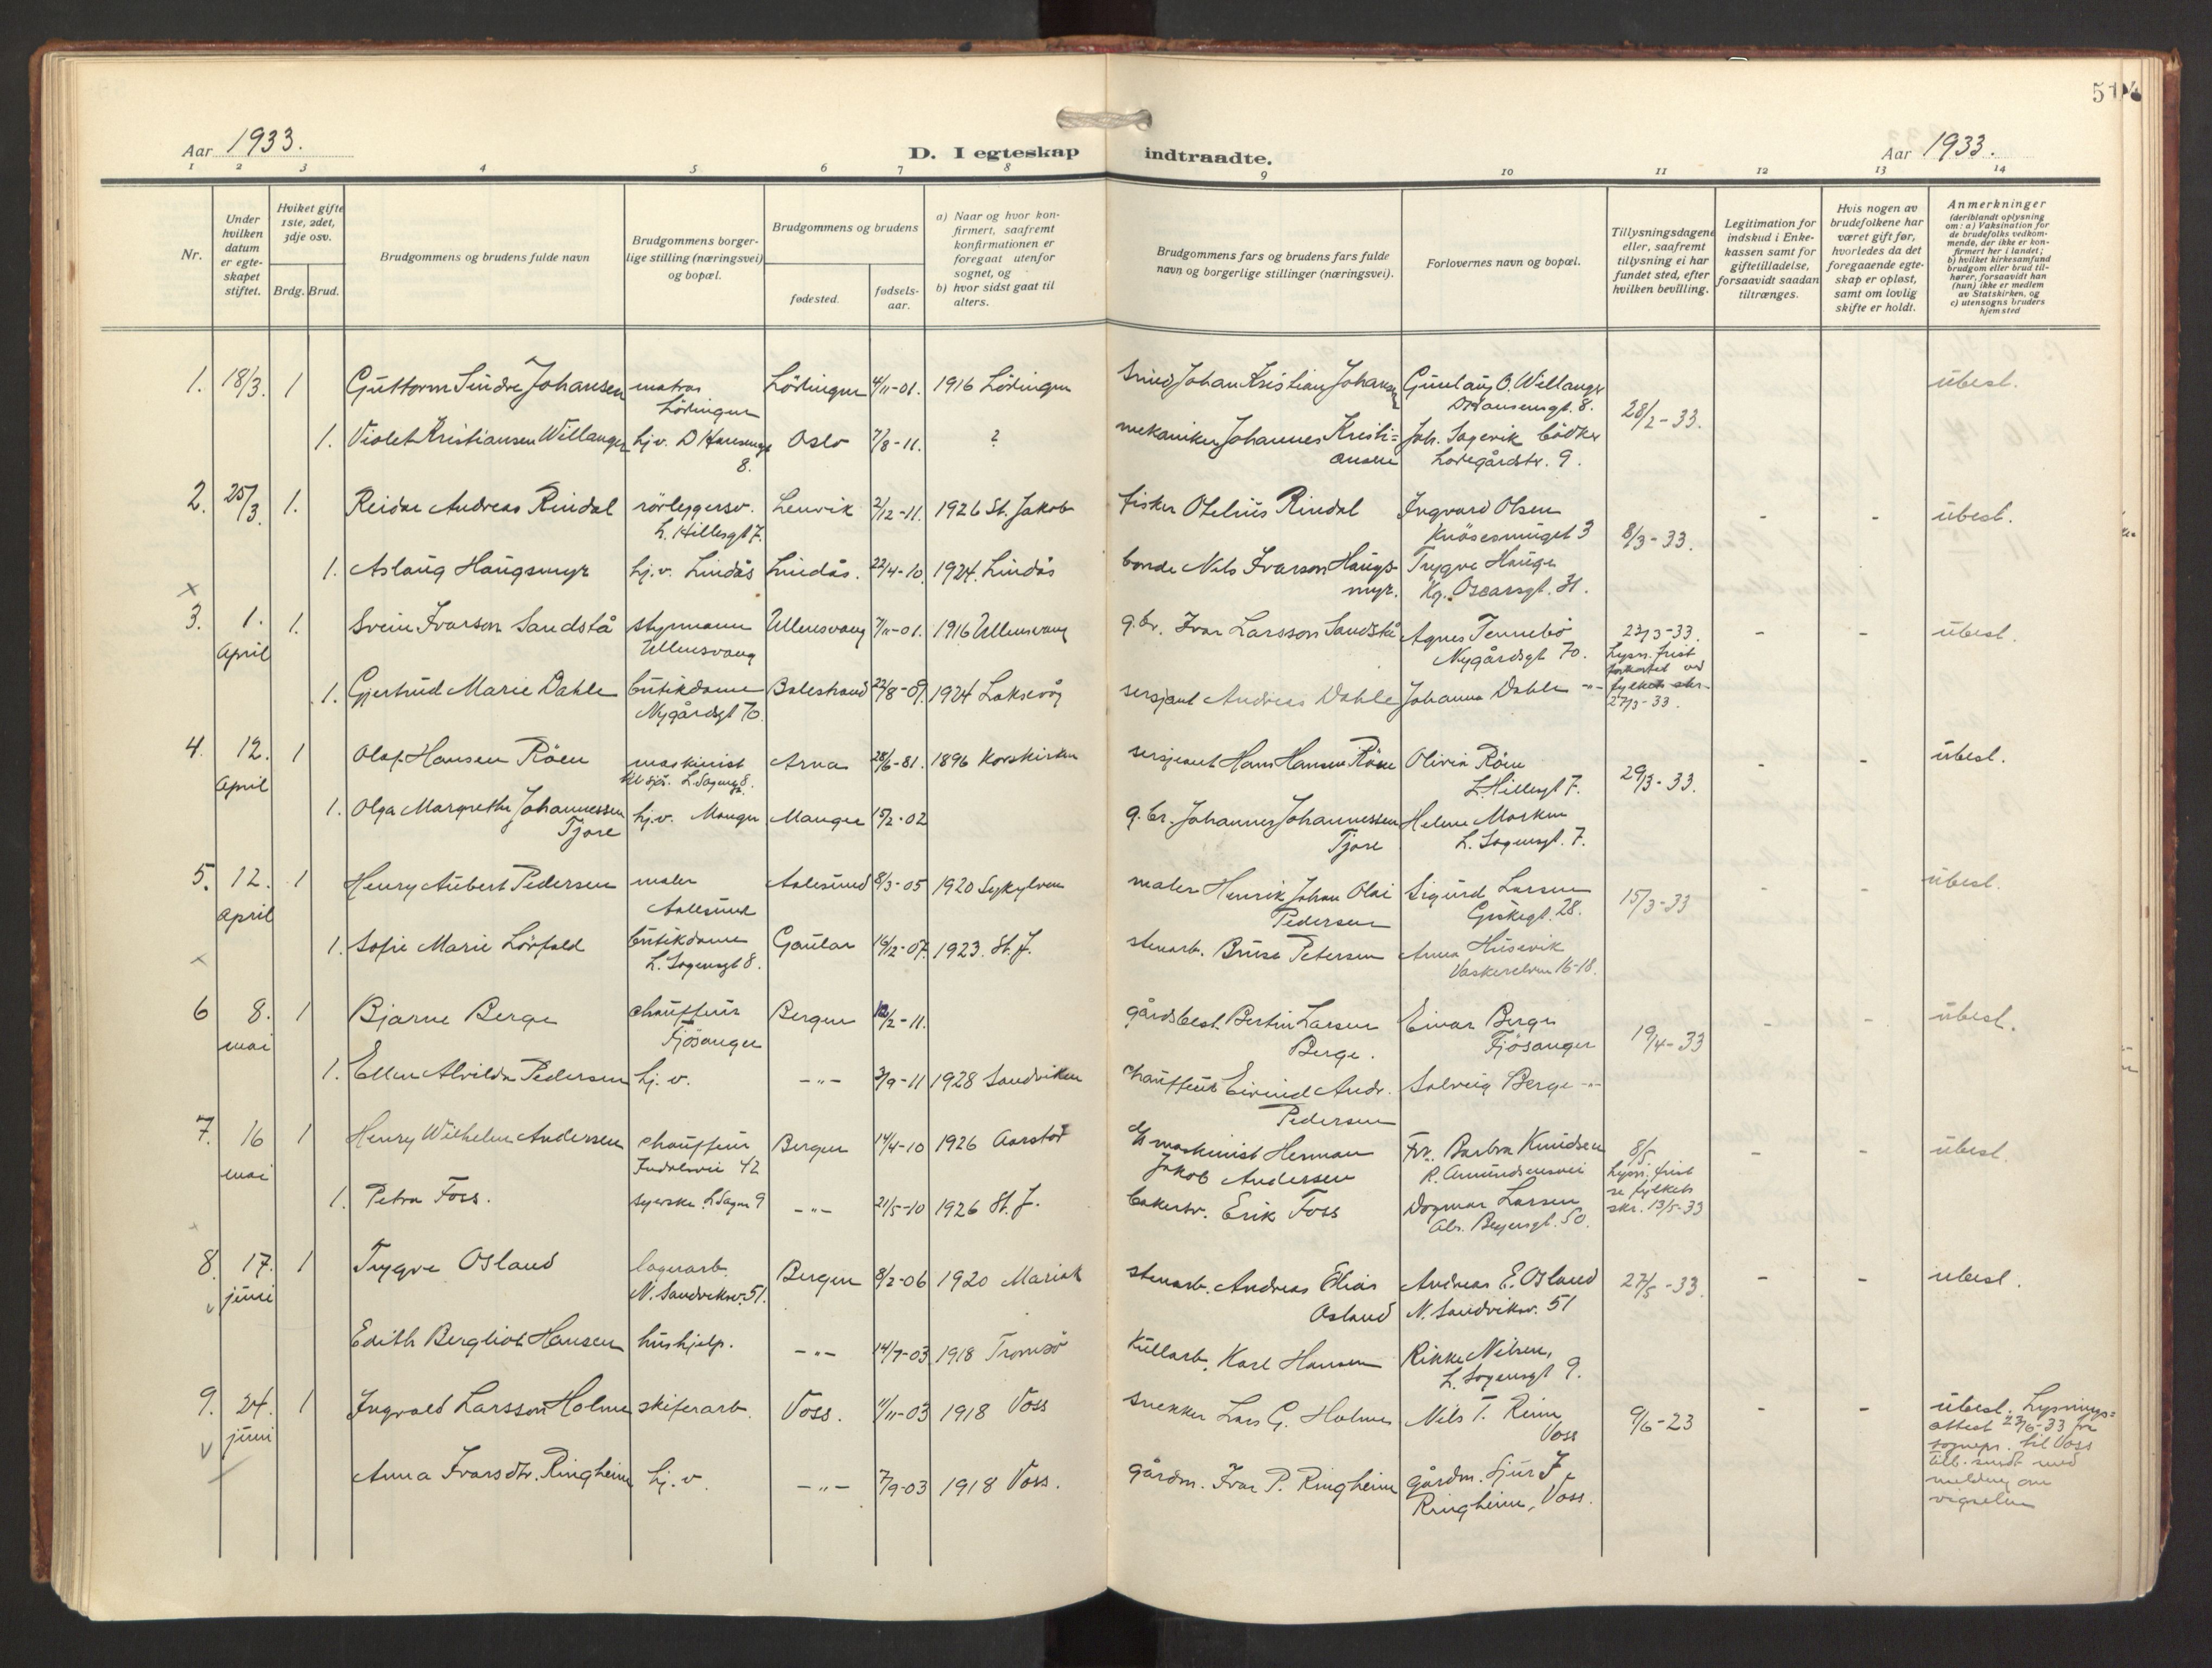 51
Aar 1933.
D. I egteskap indtraadte.
Aar 1933.
1 2 3 4 5 6 7 8 9 10 11 12 13 14
Nr.
Under
hvilken
datum
er egte-
skapet
stiftet.
Hvilket gifte
1ste, 2det,
3dje osv.
Brdg. Brud.
Brudgommens og brudens fulde navn
Brudgommens borger-
lige stilling (næringsvei)
og bopæl.
Brudgommens og brudens
fødested.
fødsels-
aar.
a) Naar og hvor kon-
firmert, saafremt
konfirmationen er
foregaat utenfor
sognet, og
b) hvor sidst gaat til
alters.
Brudgommens fars og brudens fars fulde
navn og borgerlige stillinger (næringsvei).
Forlovernes navn og bopæl.
Tillysningsdagene
eller, saafremt
tillysning ei har
fundet sted, efter
hvilken bevilling.
Legitimation for
indskud i Enke-
kassen samt for
giftetilladelse,
forsaavidt saadan
tiltrænges.
Hvis nogen av
brudefolkene har
været gift før,
hvorledes da det
foregaaende egte-
skap er opløst,
samt om lovlig
skifte er holdt.
Anmerkninger
(deriblandt oplysning
om: a) Vaksination for
de brudefolks vedkom-
mende, der ikke er kon-
firmert her i landet;
b) hvilket kirkesamfund
brudgom eller brud til-
hører, forsaavidt han
(hun) ikke er medlem
av Statskirken, og
c) utensogns bruders
hjemsted
1. 18/3. 1 Guttorm Sindre Johansen matros Lödingen 4/11-01. 1916 Lödingen Smed Johan Kristian Johansen Gunlaug O. Willanger ubesl.
Lödingen D Hansensgt. 8. 28/2-33.
1. Violet Kristiansen Willanger hj.v. D Hansensgt Oslo 7/8-11. ? mekaniker Johannes Kristi= Joh. Sagevik bödker
8. ansen Ladegårdstr. 9.
2. 25/3. 1. Reidar Andreas Rindal rörleggersv. Lenvik 2/12-11. 1926 St. Jakob fisker Otelius Rindal Ingvard Olsen - - ubesl.
L. Hillesgt 7. Knösesmuget 3 8/3-33.
1. Aslaug Haugsmyr hj.v. Lindås Lindås. 22/4-10. 1924. Lindås bonde Nils Ivarson Haugs- Trygve Hauge
myr. Kg. Oscarsgt. 31.
x
3. 1. 1. Svein Ivarson Sandstå styrmann Ullensvang 7/11-01. 1916 Ullensvang g.br. Ivar Larsson Sandstå Agnes Tennebö 22/3-33. - - ubesl.
April Ullensvang Nygårdsgt 70. Lysn. frist
1. Gjertrud Marie Dahle butikdame Balestrand 22/8-09. 1924 Laksevåg sersjant Andreas Dahle Johanna Dahle -"- fylkets skr.
Nygårdsgt 70. 27/3-33.
4. 12. 1 Olaf Hansen Röen maskinist Arna 28/6-81. 1896 Korskirken sersjeant Hans Hansen Röen Olivia Röen - - ubesl.
April L. Hillesgt 7. 29/3-33.
1. Olga Margrethe Johannessen hj.v. Manger Manger 15/2-02 g.br. Johannes Johannessen Helene Marken
Tjore Tjore L. Sagensgt. 7.
5. 12. 1 Henry Aubert Pedersen maler Aalesund 8/3-05 1920 Sykylven maler Henrik Johan Olai Sigurd Larsen 15/3-33 - - ubesl.
April Aalesund Pedersen Giskegt. 28.
1. Sofie Marie Lörfald butikdame Gaular 16/12-07. 1923. St. J. stenarb. Bruse Petersen Anna Husevik
x L. Sagensgt 8. Vaskerelven 16-18.
6 8. 1 Bjarne Berge chauffeur Bergen 12/2-11. gårdsbest. Bertin Larsen Einar Berge - - ubesl.
mai Fjösanger Berge. Fjösanger 19/4-33
1. Ellen Alvilda Pedersen hj.v. -"- 3/9-11 1928 Sandviken chauffeur Eivind Andr. Solveig Berge -"-
Pedersen
7. 16 1 Henry Wilhelm Andersen chauffeur Bergen 14/4-10 1926 Aarstad maskinist Herman Frk. Barbra Knudsen 8/5 - - ubesl.
mai 42 Jakob Andersen R. Amundsensvei Lysn. frist
1. Petra Foss. syerske L Sagen 9 -"- 21/5-10 1926 St. J. bakersv. Erik Foss Dagmar Larsen se fylkets
Abs. Beyersgt. 50. skr. 13/5-33
8. 17. 1 Trygve Osland lagerarb. Bergen 8/2-06 1920 Mariak stenarb. Andreas Elias Andreas E. Osland 27/5-33. - - ubesl.
juni N. Sandviksv. 51. Osland N. Sandviksv. 51
Edith Bergliot Hansen hushjelp. -"- 14/7-03 1918 Tromsö kullarb. Karl Hansen Rikke Nilsen,
L. Sagensgt 9.
9. 24. 1 Ingvald Larsson Holme skiferarb. Voss. 11/11-03 1918 Voss snekker Lars G. Holme Nils T. Rein 9/6-23 - - ubesl. Lysnings=
juni Voss attest 23/6-33 fra
sognepr. til Voss
Anna Ivarsdtr. Ringheim hj.v. -"- 7/9-03 1918 Voss. gårdm. Ivar P. Ringheim gårdm. Sjur I. tilb. sendt med
Ringheim, Voss. melding om
vigselen